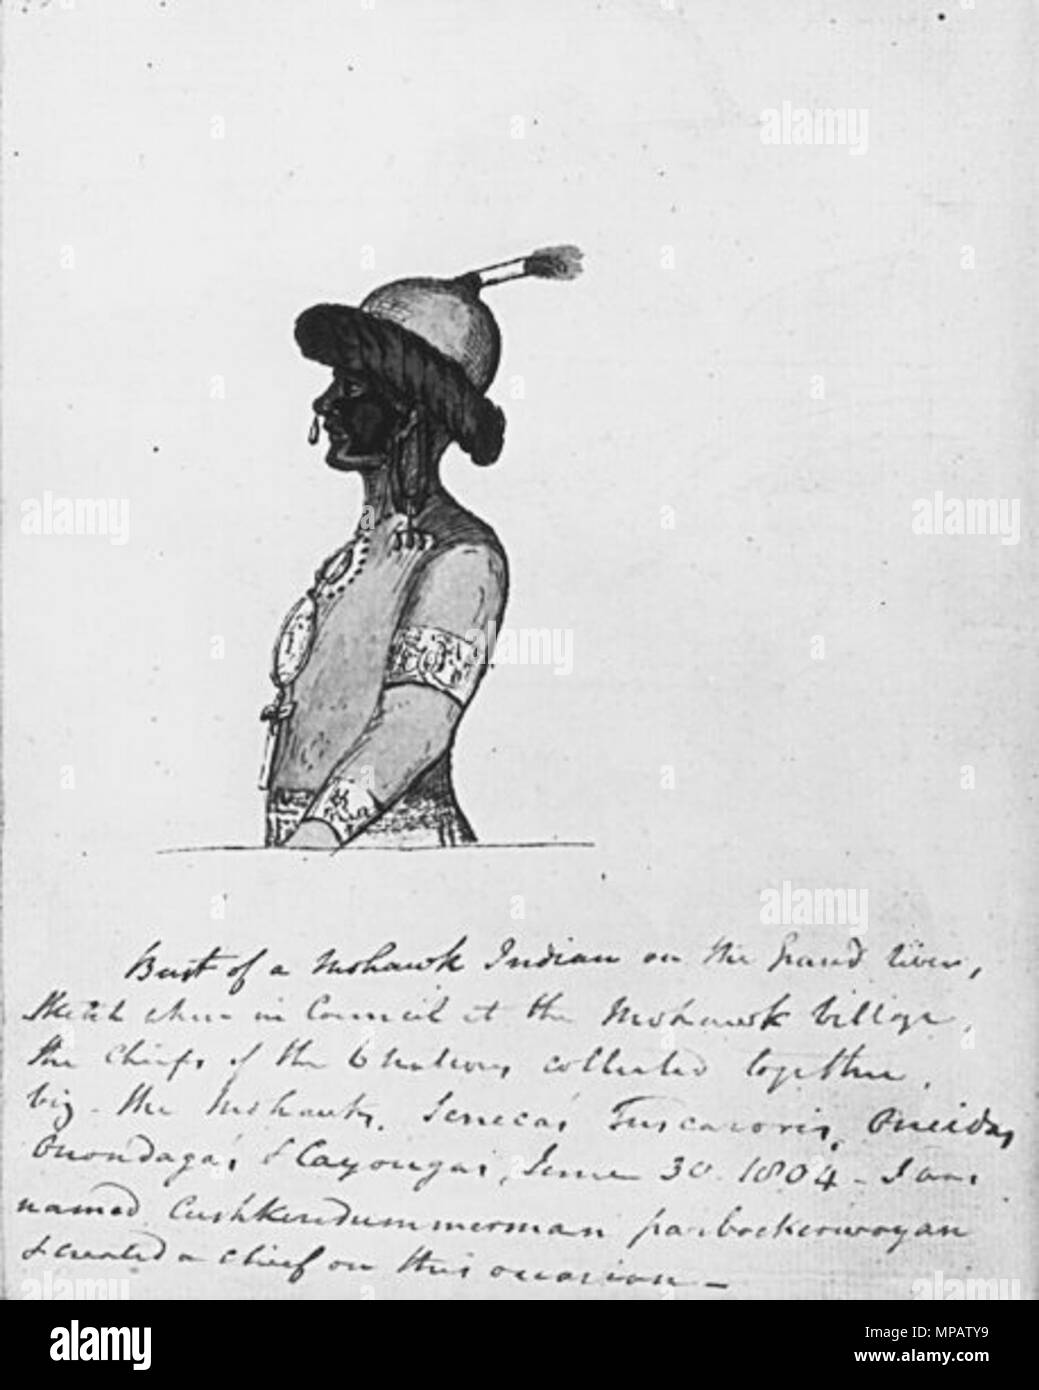 Bust of a Mohawk Indian on the Grand River,
Sketch when in Council at the Mohawk Village,
the Chiefs of the 6 nations collected together,
viz - the Mohawks, Seneca's Tuscaroris, Oneidas
Onondaga's & Cayouga's, June 30 1804 - I was
named Cushkendummerman paibockerwayan
& created a chief on this occasion -
alamy
alamy
alamy
alamy
alamy
alamy
a
a
a
a
a
a
a
a
a
a
alamy
Image ID: MPATY9
www.alamy.com